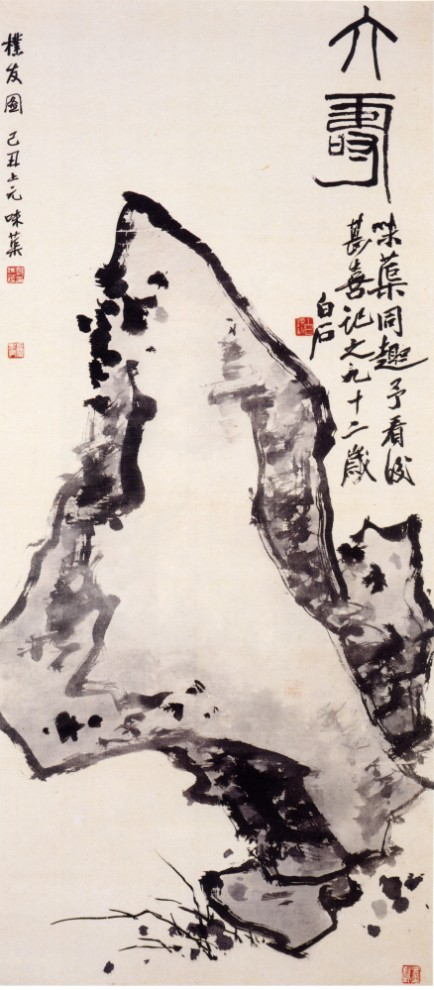 大壽
味蕖同趣予看後
甚喜记之九十二歲
白石
樸友圖 己丑上元 味蕖